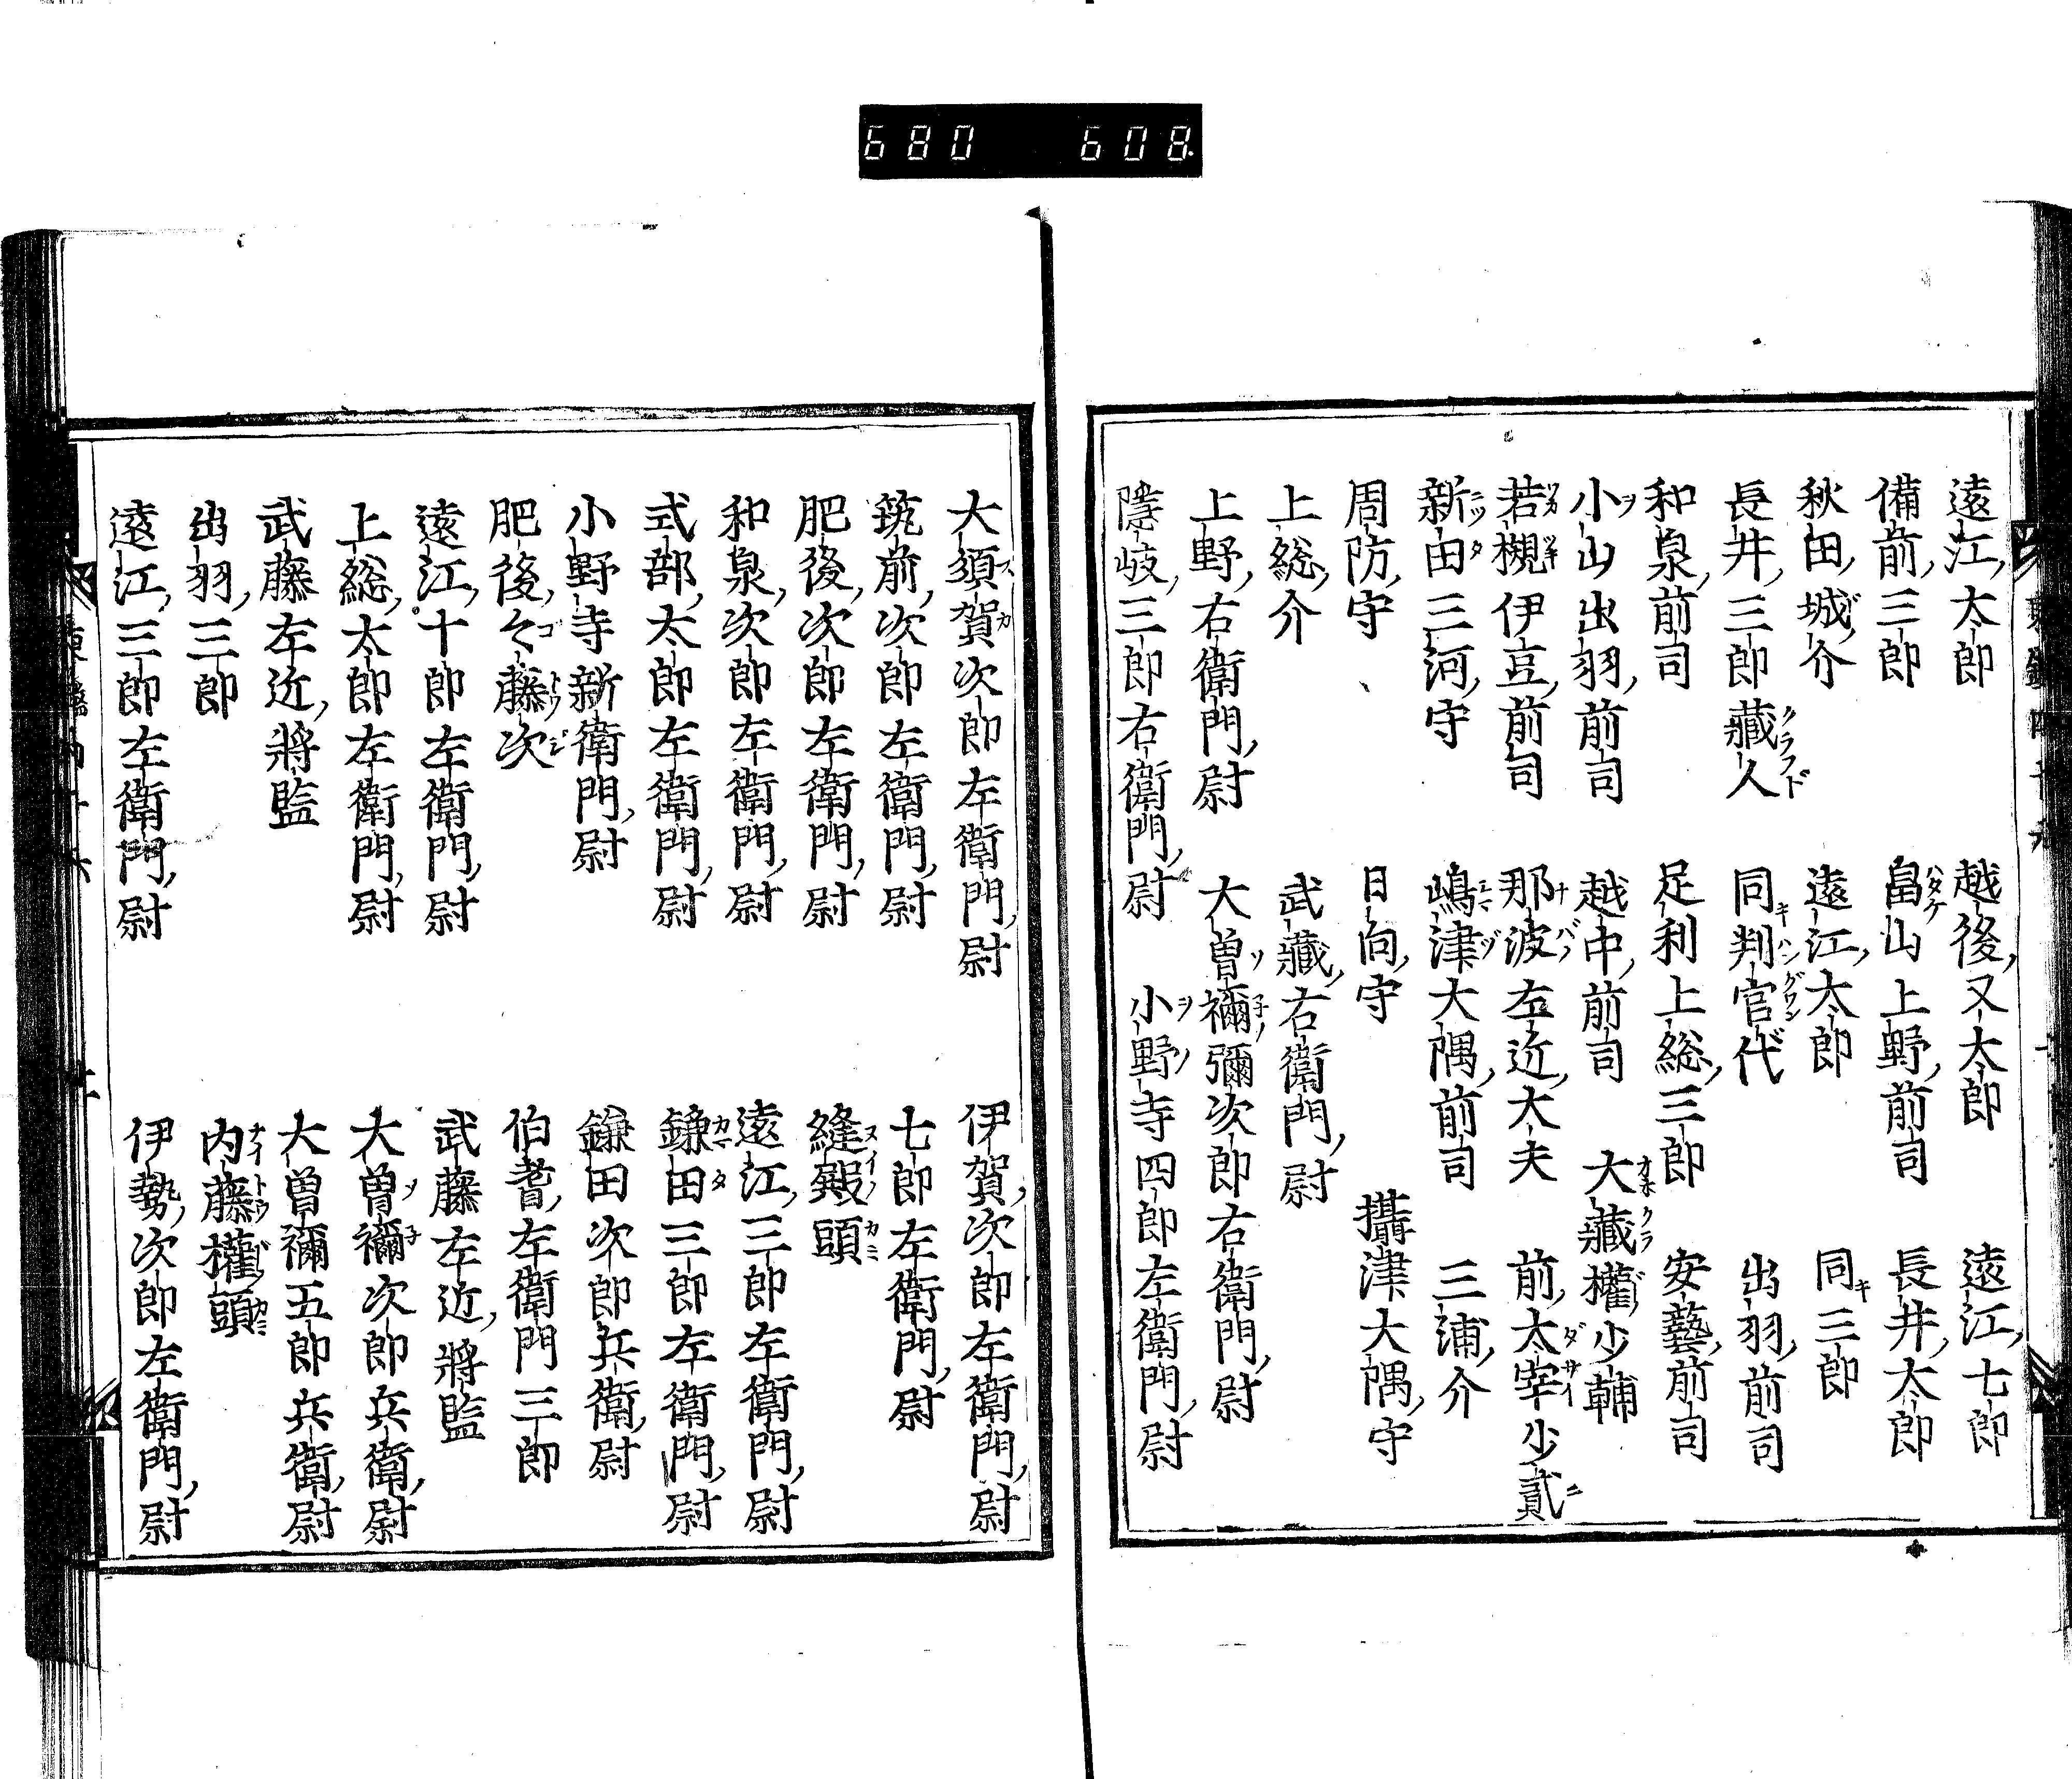 680 608.
遠江太郎 越後又太郎 遠江七郎
備前三郎 畠山上野前司 長井太郎
秋田城介 遠江太郎 同三郎
長井三郎藏人 同判官代 出羽前司
和泉前司 足利上総三郎 安藝前司
小山出羽前司 越中前司 大藏權少輔
若槻伊豆前司 那波左近大夫 前太宰少貳
新田三河守 嶋津大隅前司 三浦介
周防守 日向守 攝津大隅守
上総介 武藏右衛門尉
上野右衛門尉 大曽禰彌次郎右衛門尉
隱岐三郎右衛門尉 小野寺四郎左衛門尉
大須賀次郎左衛門尉 伊賀次郎左衛門尉
筑前次郎左衛門尉 七郎左衛門尉
肥後次郎左衛門尉 縫殿頭
和泉次郎左衛門尉 遠江三郎左衛門尉
式部太郎左衛門尉 鎌田三郎左衛門尉
小野寺新衛門尉 鎌田次郎兵衛尉
肥後々藤次 伯耆左衛門三郎
遠江十郎左衛門尉 武藤左近將監
上総太郎左衛門尉 大曽禰次郎兵衛尉
武藤左近將監 大曽禰五郎兵衛尉
出羽三郎 内藤權頭
遠江三郎左衛門尉 伊勢次郎左衛門尉